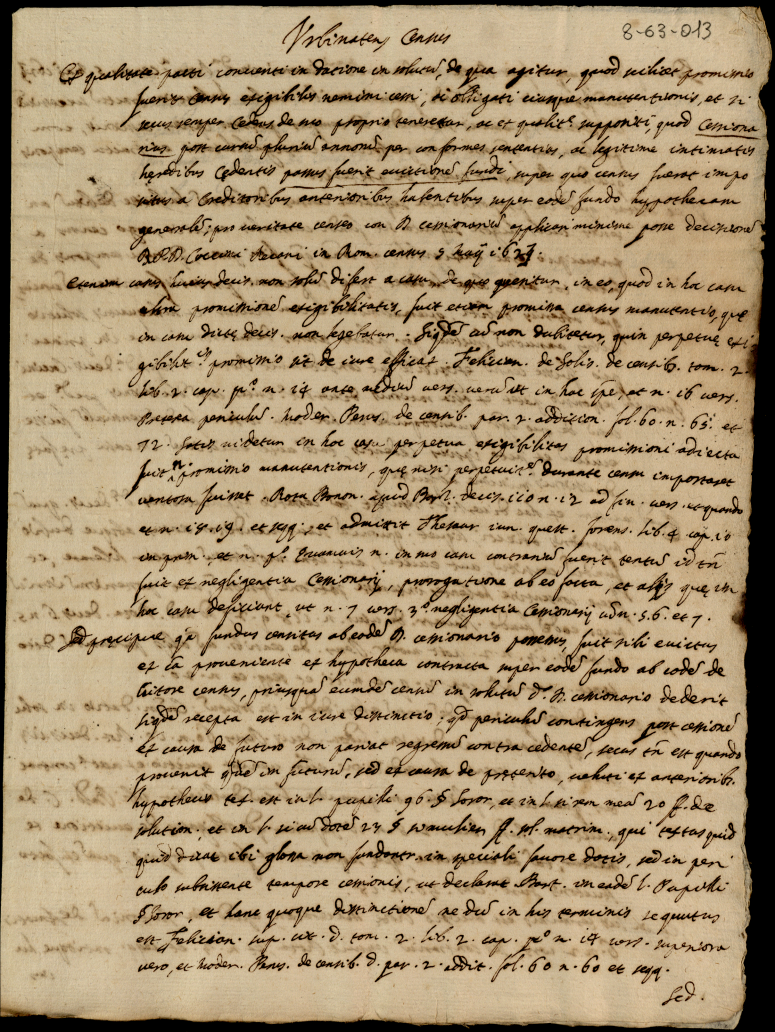 8-63-013
Urbinatens Census
Ex qualitate pacti conventi in datione in solutũ, de qua agitur, quod scilicet promissio
fuerit census exigibilis nemini cessi, si obligati eiusque manutentionis, et si
secus semper Cedens de suo proprio teneretur, ac et qualit. suppositi, quod Cessiona
rius post cursũ pluriũ annorũ per conformes sententias, ac legitime intimatas
hęredibus Cedentis passus fuerit evictionẽ fundi, super quo census fuerat impo
situs a Creditoribus anterioribus habentibus super eodẽ fundo hypothecam
generalẽ; pro veritate censeo con D. cessionariũ applicari minime posse decisionẽ
R.P.D. Coccini Decani in Rom. census 5 Maij 162
Etenim casus huius decis. non solũ differt a casu, de quo queritur, in eo, quod in hoc casu
ultra promissionẽ exigibilitatis, fuit etiam promissa census manutentio, quę
in casu dictę decis. non legebatur. Siqdẽ cũ non dubitetur, quin perpetuę exi
gibilit.is promissio sit de iure efficax. Felician. de Solis. de censib. tom. 2.
lib. 2. cap. p.o n. 14 ante mediũ vers. verũ et in hoc ipe, et n. 16 vers.
Pretea periculũ. Moder. Perus. de censib. par. 2. addition. fol. 60. n. 65. et
72. satis videtur in hoc casu perpetua exigibilitas promissioni adiecta
fuit promissio manutentionis, quę nisi perpetuit.ẽ durante censu importaret
ventosa fuisset. Rota Bonon. apud Bort. decis. 110 n. 12 ad fin. vers. et quando
et n. 18. 19. et seqq.; et admittit Thesaur. iun. quest. forens. lib. 4 cap. 10
in prin. et n. p.o Quamvis n. in suo casu contrariũ fuerit tentũ id tñ
fuit ex negligentia Cessionarij, prorogatione ab eo facta, et alijs quę in
hoc casu deficiunt, ut n. 7 vers. 3.o negligentia Cessionarij v n. 5. 6. et 7.
Sed pręcipue qa fundus censitus ab eodẽ D. cessionario possessus, fuit sibi evictus
ex cã proveniente ex hypotheca contracta super eodẽ fundo ab eodẽ de
bitore census, priusquã eiumdẽ censũ in solutũ d.o D. cessionario dederit
siqdẽ recepta est in iure distinctio; qd periculũ contingens post cessionẽ
ex causa de futuro non pariat regressũ contra cedentẽ, secus tñ est quando
provenit qdẽ in futurũ, sed ex causa de pręterito, veluti ex anteriorib.
hypothecis tex. est in l. pupilli 96. § Soror, et in l. si rem meã 20 ff. de
solution. et in l. si cũ dotẽ 23 § si mulier ff. sol. matrim., qui textus quid
quid dicat ibi glosa non fundantr. in speciali favore dotis, sed in peri
culo subsistente tempore cessionis, ut declarat Bart. in eadẽ l. Pupilli
§ Soror, et hanc quoque distinctionẽ ne dũ in his terminis sequutus
est Felician. sup. cit. d. tom. 2. lib. 2. cap. p.o n. 14 vers. superiora
vero, et Moder. Perus. de censib. d. par. 2. addit. fol. 60 n. 60 et seqq.
Sed